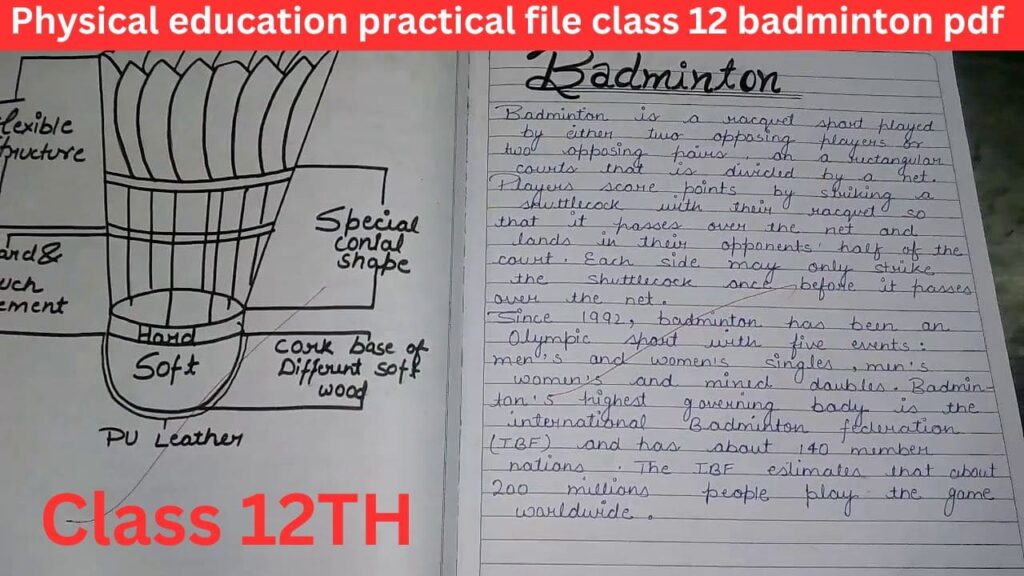 Physical education practical file class 12 badminton pdf
flexible
structure
Hard &
such
ement
Special
conlal
shape
Hard
Soft
cork base of
Different soft
wood
PU Leather
Class 12TH
Badminton
Badminton is a racquet sport played
by either two opposing players or
two opposing pairs, on a rectangular
courts that is divided by a net.
Players score points by striking a
shuttlecock with their racquet so
that it passes over the net and
lands in their opponents' half of the
court. Each side may only strike
the shuttlecock once before it passes
over the net.
Since 1992, badminton has been an
Olympic sport with five events:
men's and women's singles, men's
women's and mined doubles. Badmin-
tan's highest governing body is the
international Badminton federation
(IBF) and has about 140 member
nations. The IBF estimates that about
200 millions people play the game
worldwide.